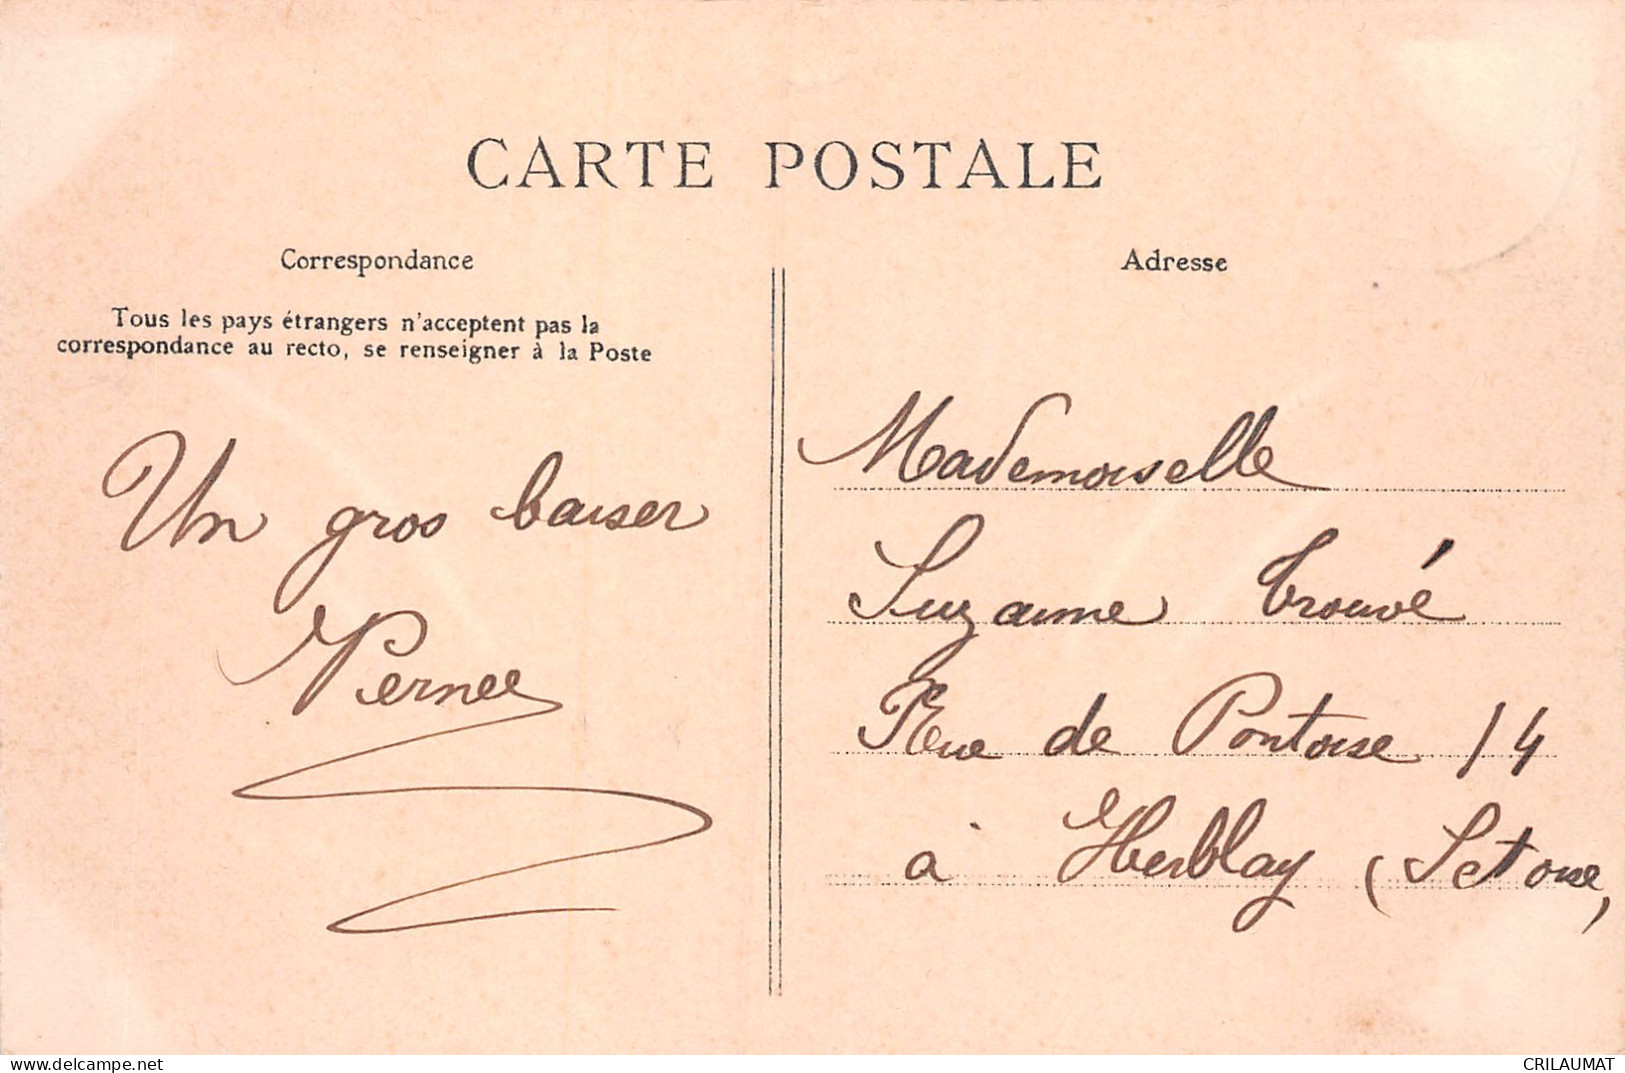 CARTE POSTALE
Correspondance
Tous les pays étrangers n'acceptent pas la
correspondance au recto, se renseigner à la Poste
Un gros baiser
Adresse
Mademoiselle
Suzanne Trouvé
Rue de Pontoise 14
à Herblay (S et Oise)
www.delcampe.net
CRILAUMAT